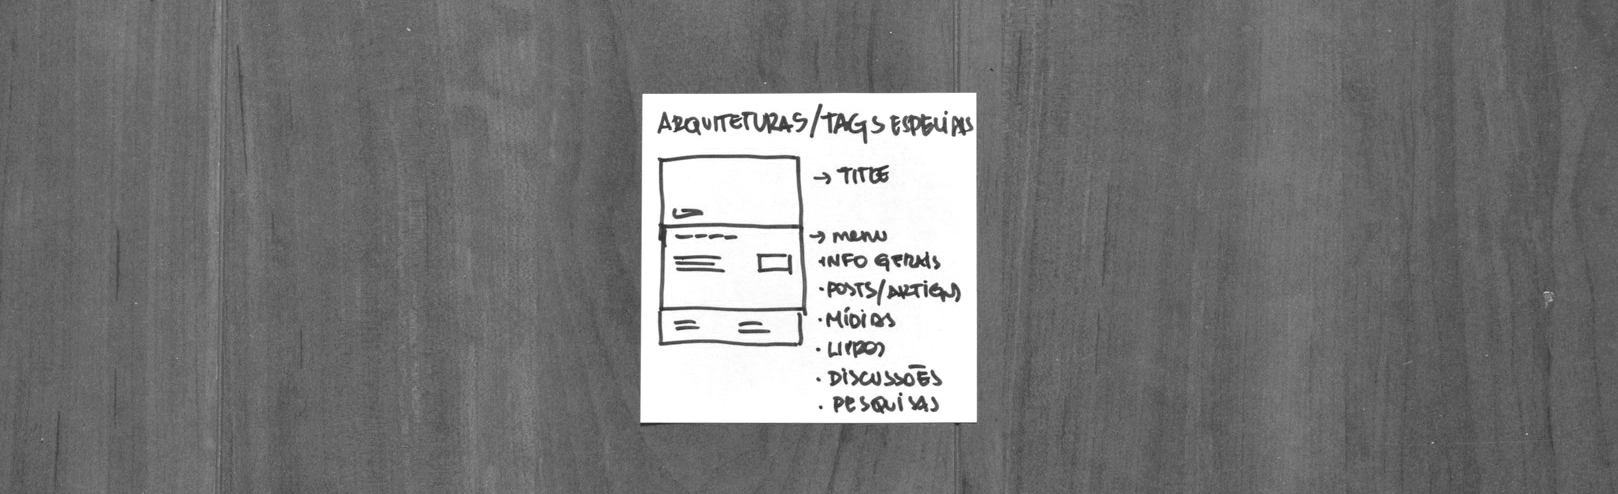 ARQUITETURAS/TAGS ESPECIAIS
→ TITLE
→ MENU
·INFO GERAIS
·POSTS/ARTIGOS
·MÍDIAS
·LIVROS
·DISCUSSÕES
·PESQUISAS